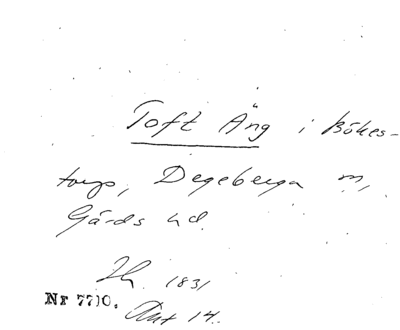 Toft Äng i Bökes-
torp, Degeberga sn,
Gärds hd.
1831
Nr 7710.
Akt 14.